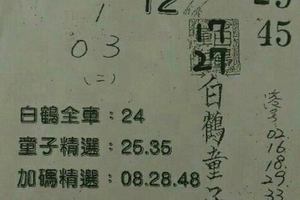 1
12
29
03
(二)
17
27
45
白鶴全車:24
童子精選:25.35
加碼精選:08.28.48
白鶴童子
02
16
18
29
33